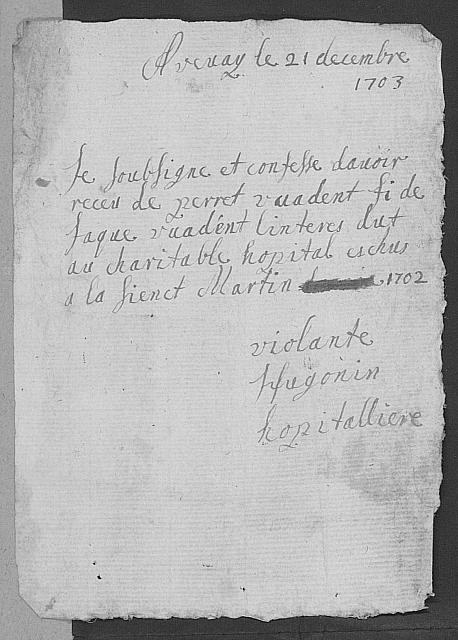 Avenay le 21 decembre
1703
Je soubsigne et confesse davoir
receu de perret vuadent fi de
Jaque vuadént linteres dut
au charitable hopital eschus
a la sienct Martin 1702
violante
Hugonin
hopitalliere